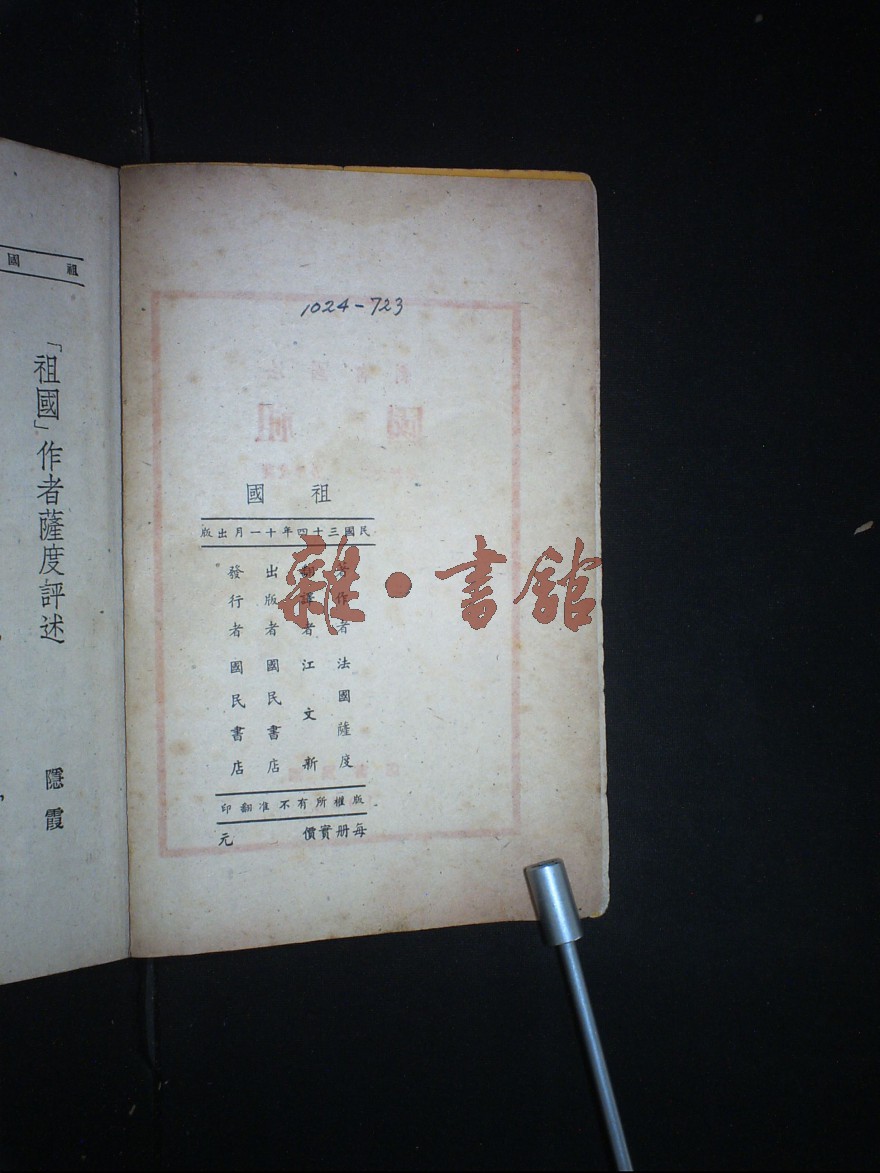 1024-723
祖國
民國三十四年十一月出版
著作者 法國薩度
翻譯者 江文新
出版者 國民書店
發行者 國民書店
版權所有不准翻印
每册實價 元
祖國
「祖國」作者薩度評述
隱霞
雜·書館